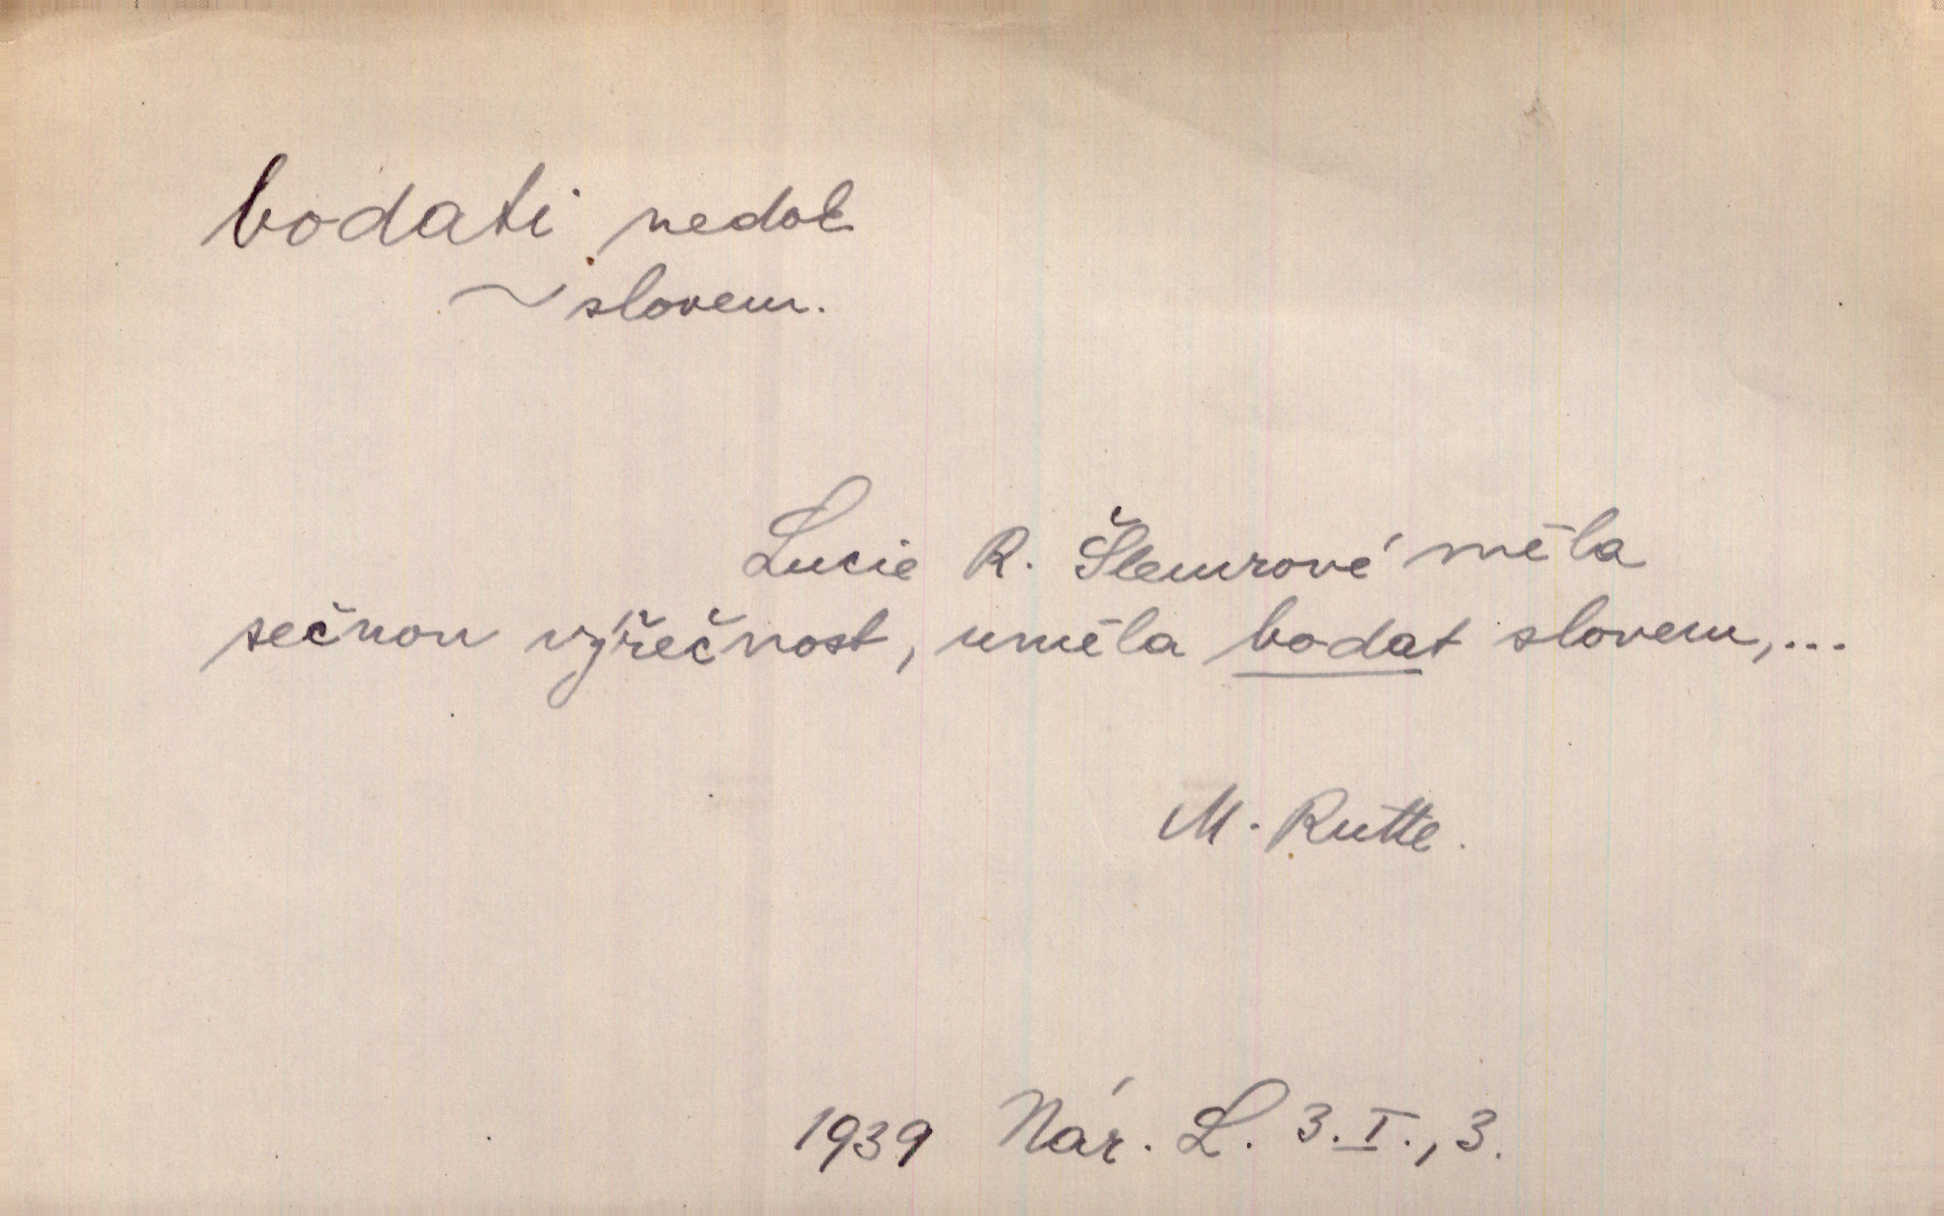 bodati nedok
~ slovem.
Lucie R. Šlemrové měla
sečnou výřečnost, uměla bodat slovem,...
M. Rutte.
1939 Nár. L. 3.I., 3.